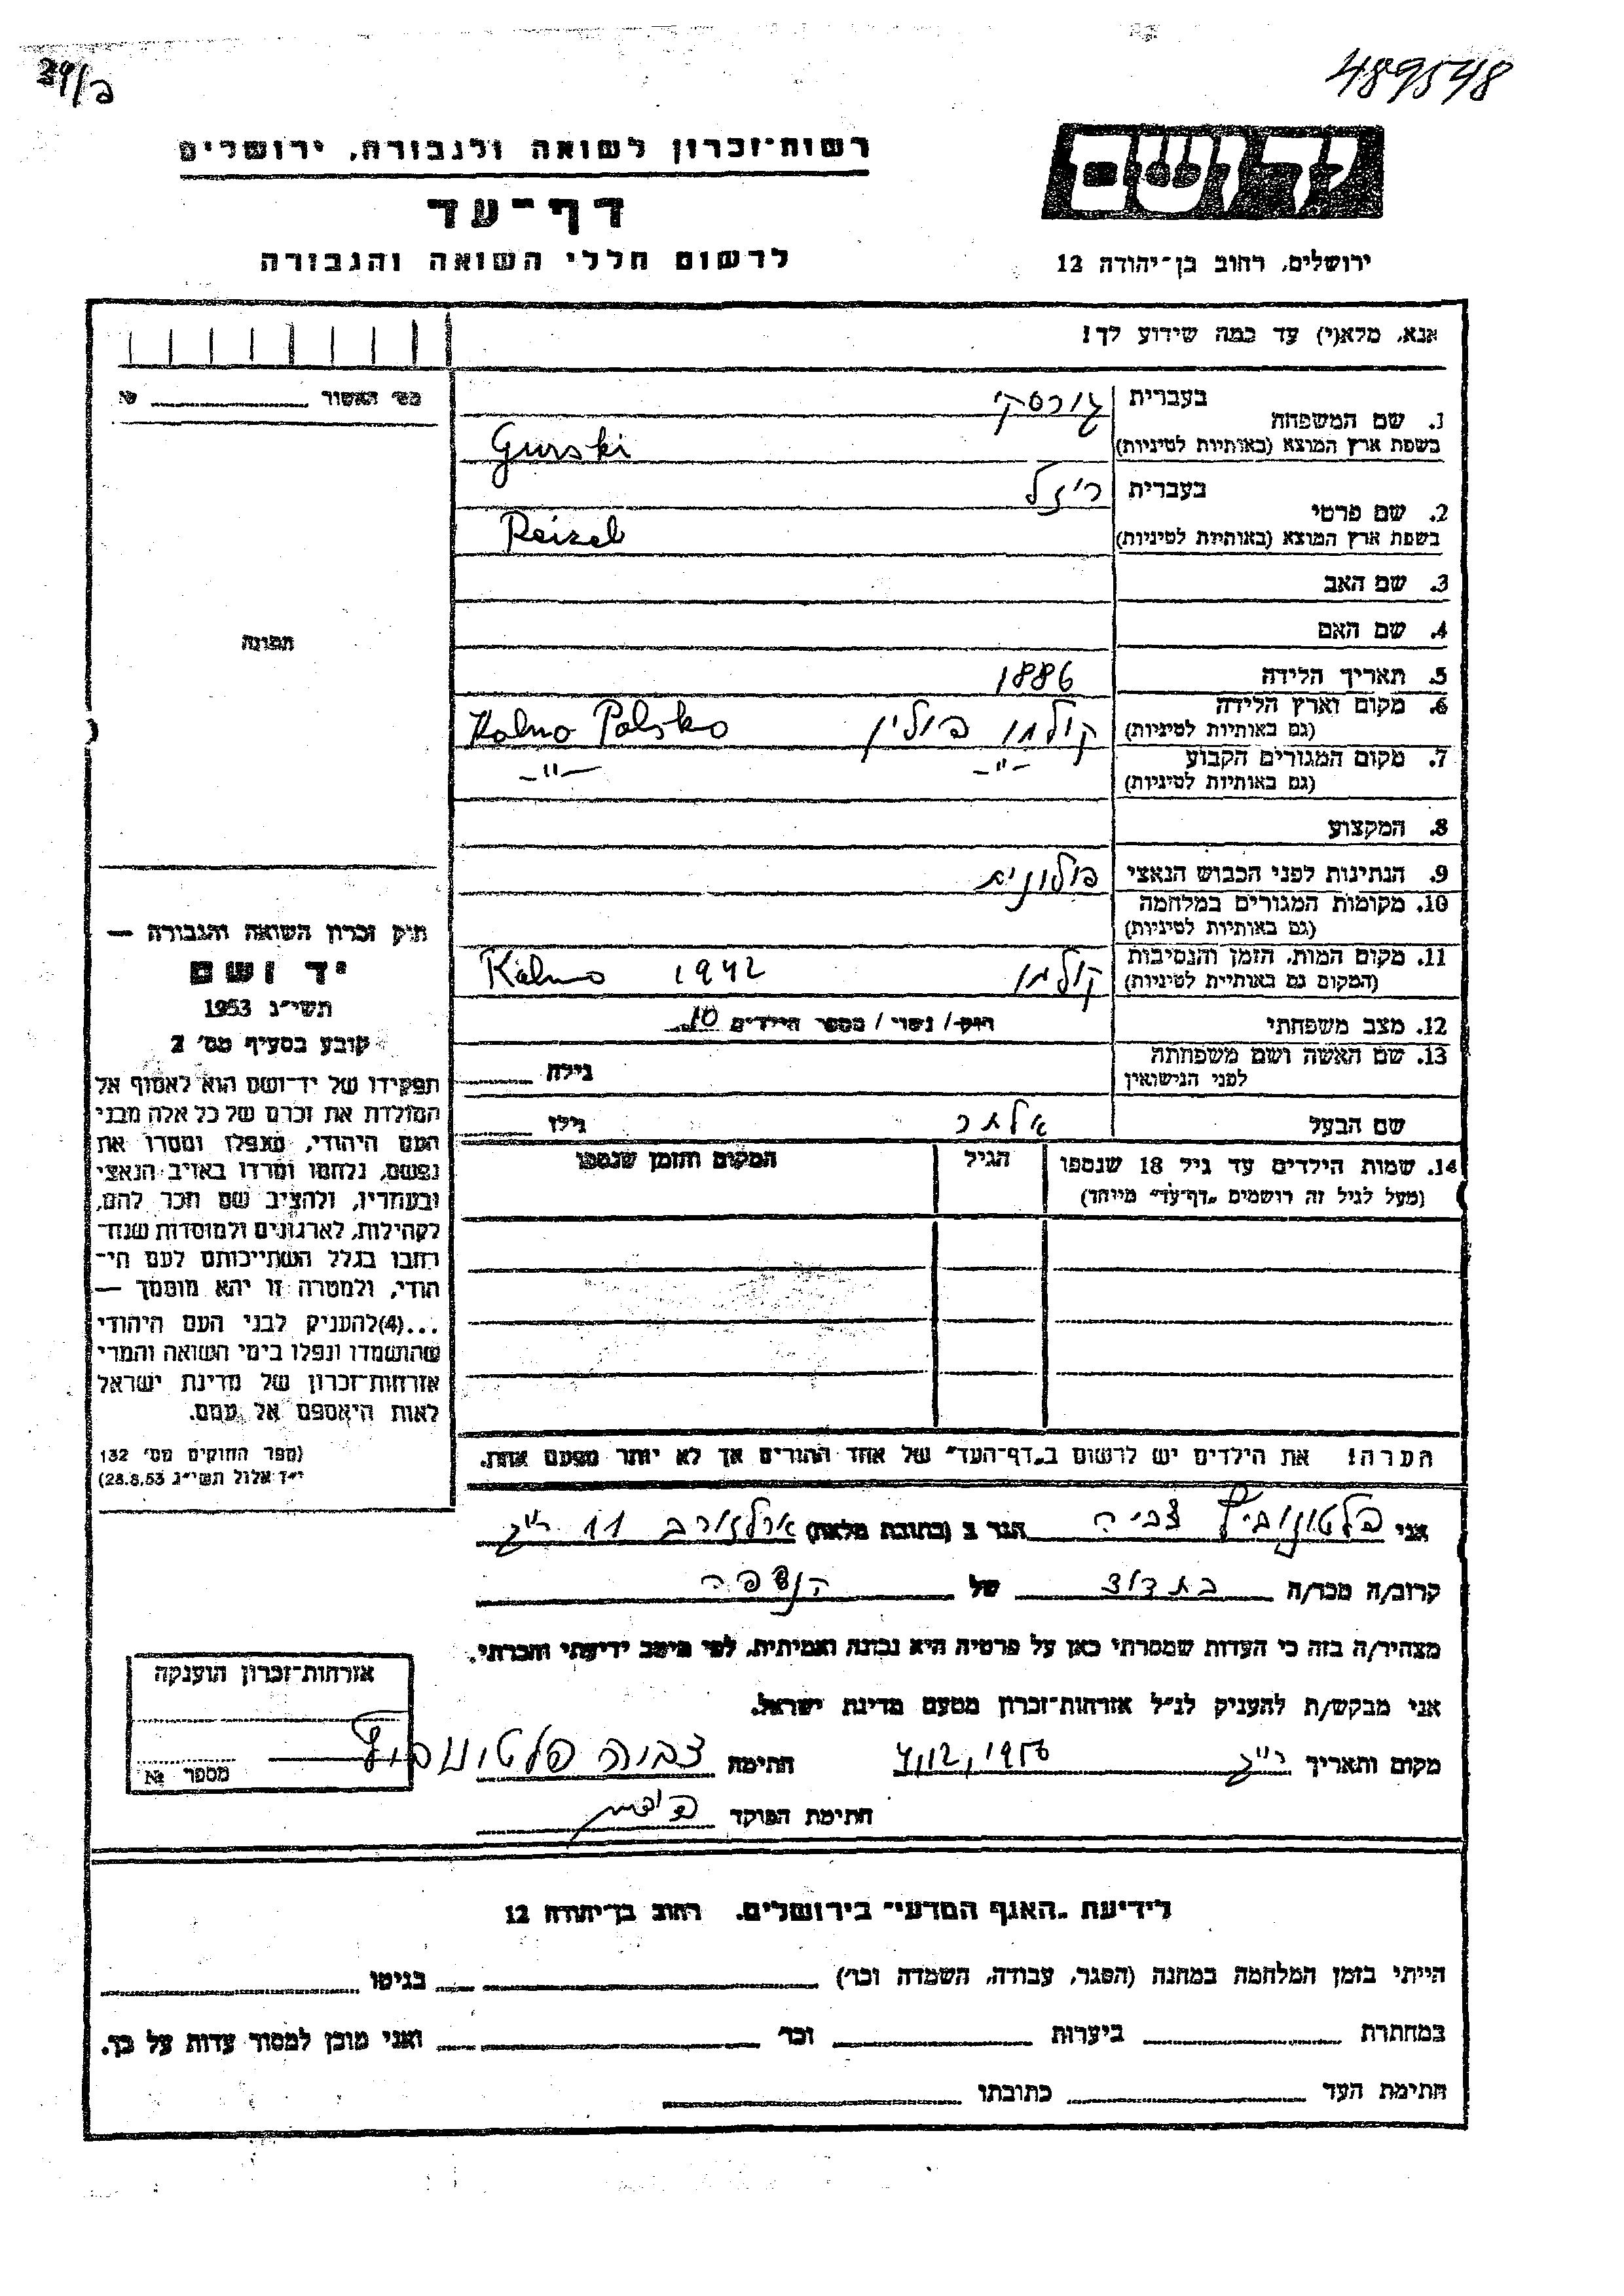 39/ב
489548
רשות־זכרון לשואה ולגבורה, ירושלים
דף־עד
לרשום חללי השואה והגבורה
יד ושם
ירושלים, רחוב בן־יהודה 12
אנא, מלא(י) עד כמה שידוע לך!
מס׳ האשור №
1. שם המשפחה
בעברית
גורסקי
בשפת ארץ המוצא (באותיות לטיניות)
Gurski
2. שם פרטי
בעברית
ריזל
בשפת ארץ המוצא (באותיות לטיניות)
Reizel
3. שם האב
4. שם האם
תמונה
5. תאריך הלידה
1886
6. מקום וארץ הלידה
(גם באותיות לטיניות)
קולנו פולין Kolno Polsko
7. מקום המגורים הקבוע
(גם באותיות לטיניות)
–״– –״–
8. המקצוע
9. הנתינות לפני הכבוש הנאצי
פולונית
10. מקומות המגורים במלחמה
(גם באותיות לטיניות)
11. מקום המות, הזמן והנסיבות
(המקום גם באותיות לטיניות)
קולנו 1942 Kolno
12. מצב משפחתי
רווק/ נשוי/ מספר הילדים 10
13. שם האשה ושם משפחתה
לפני הנישואין
גילה
שם הבעל
אלתר
גילו
14. שמות הילדים עד גיל 18 שנספו
(מעל לגיל זה רושמים „דף־עד״ מיוחד)
הגיל
המקום והזמן שנספו
הערה! את הילדים יש לרשום ב„דף־העד״ של אחד ההורים אך לא יותר מפעם אחת.
חוק זכרון השואה והגבורה —
יד ושם
תשי״ג 1953
קובע בסעיף מס׳ 2
תפקידו של יד־ושם הוא לאסוף אל
המולדת את זכרם של כל אלה מבני
העם היהודי, שנפלו ומסרו את
נפשם, נלחמו ומרדו באויב הנאצי
ובעוזריו, ולהציב שם וזכר להם,
לקהילות, לארגונים ולמוסדות שנח־
רבו בגלל השתייכותם לעם הי־
הודי, ולמטרה זו יהא מוסמך —
...(4)להעניק לבני העם היהודי
שהושמדו ונפלו בימי השואה והמרי
אזרחות־זכרון של מדינת ישראל
לאות היאספם אל עמם.
(ספר החוקים מס׳ 132
י״ד אלול תשי״ג 28.8.53)
אני פלטונוביץ צביה הגר ב (כתובת מלאה) ארלוזורוב 11 ר״ג
קרוב/ה מכר/ה בת דוד של הנספה
מצהיר/ה בזה כי העדות שמסרתי כאן על פרטיה היא נכונה ואמיתית, לפי מיטב ידיעתי והכרתי.
אני מבקש/ת להעניק לנ״ל אזרחות־זכרון מטעם מדינת ישראל.
מקום ותאריך ר״ג 4,12,1956 חתימה צביה פלטונוביץ
חתימת הפוקד
אזרחות־זכרון הוענקה
מספר №
לידיעת „האגף המדעי״ בירושלים, רחוב בן־יהודה 12
הייתי בזמן המלחמה במחנה (הסגר, עבודה, השמדה וכו׳) בגיטו
במחתרת ביערות וכו׳ ואני מוכן למסור עדות על כך.
חתימת העד כתובתו